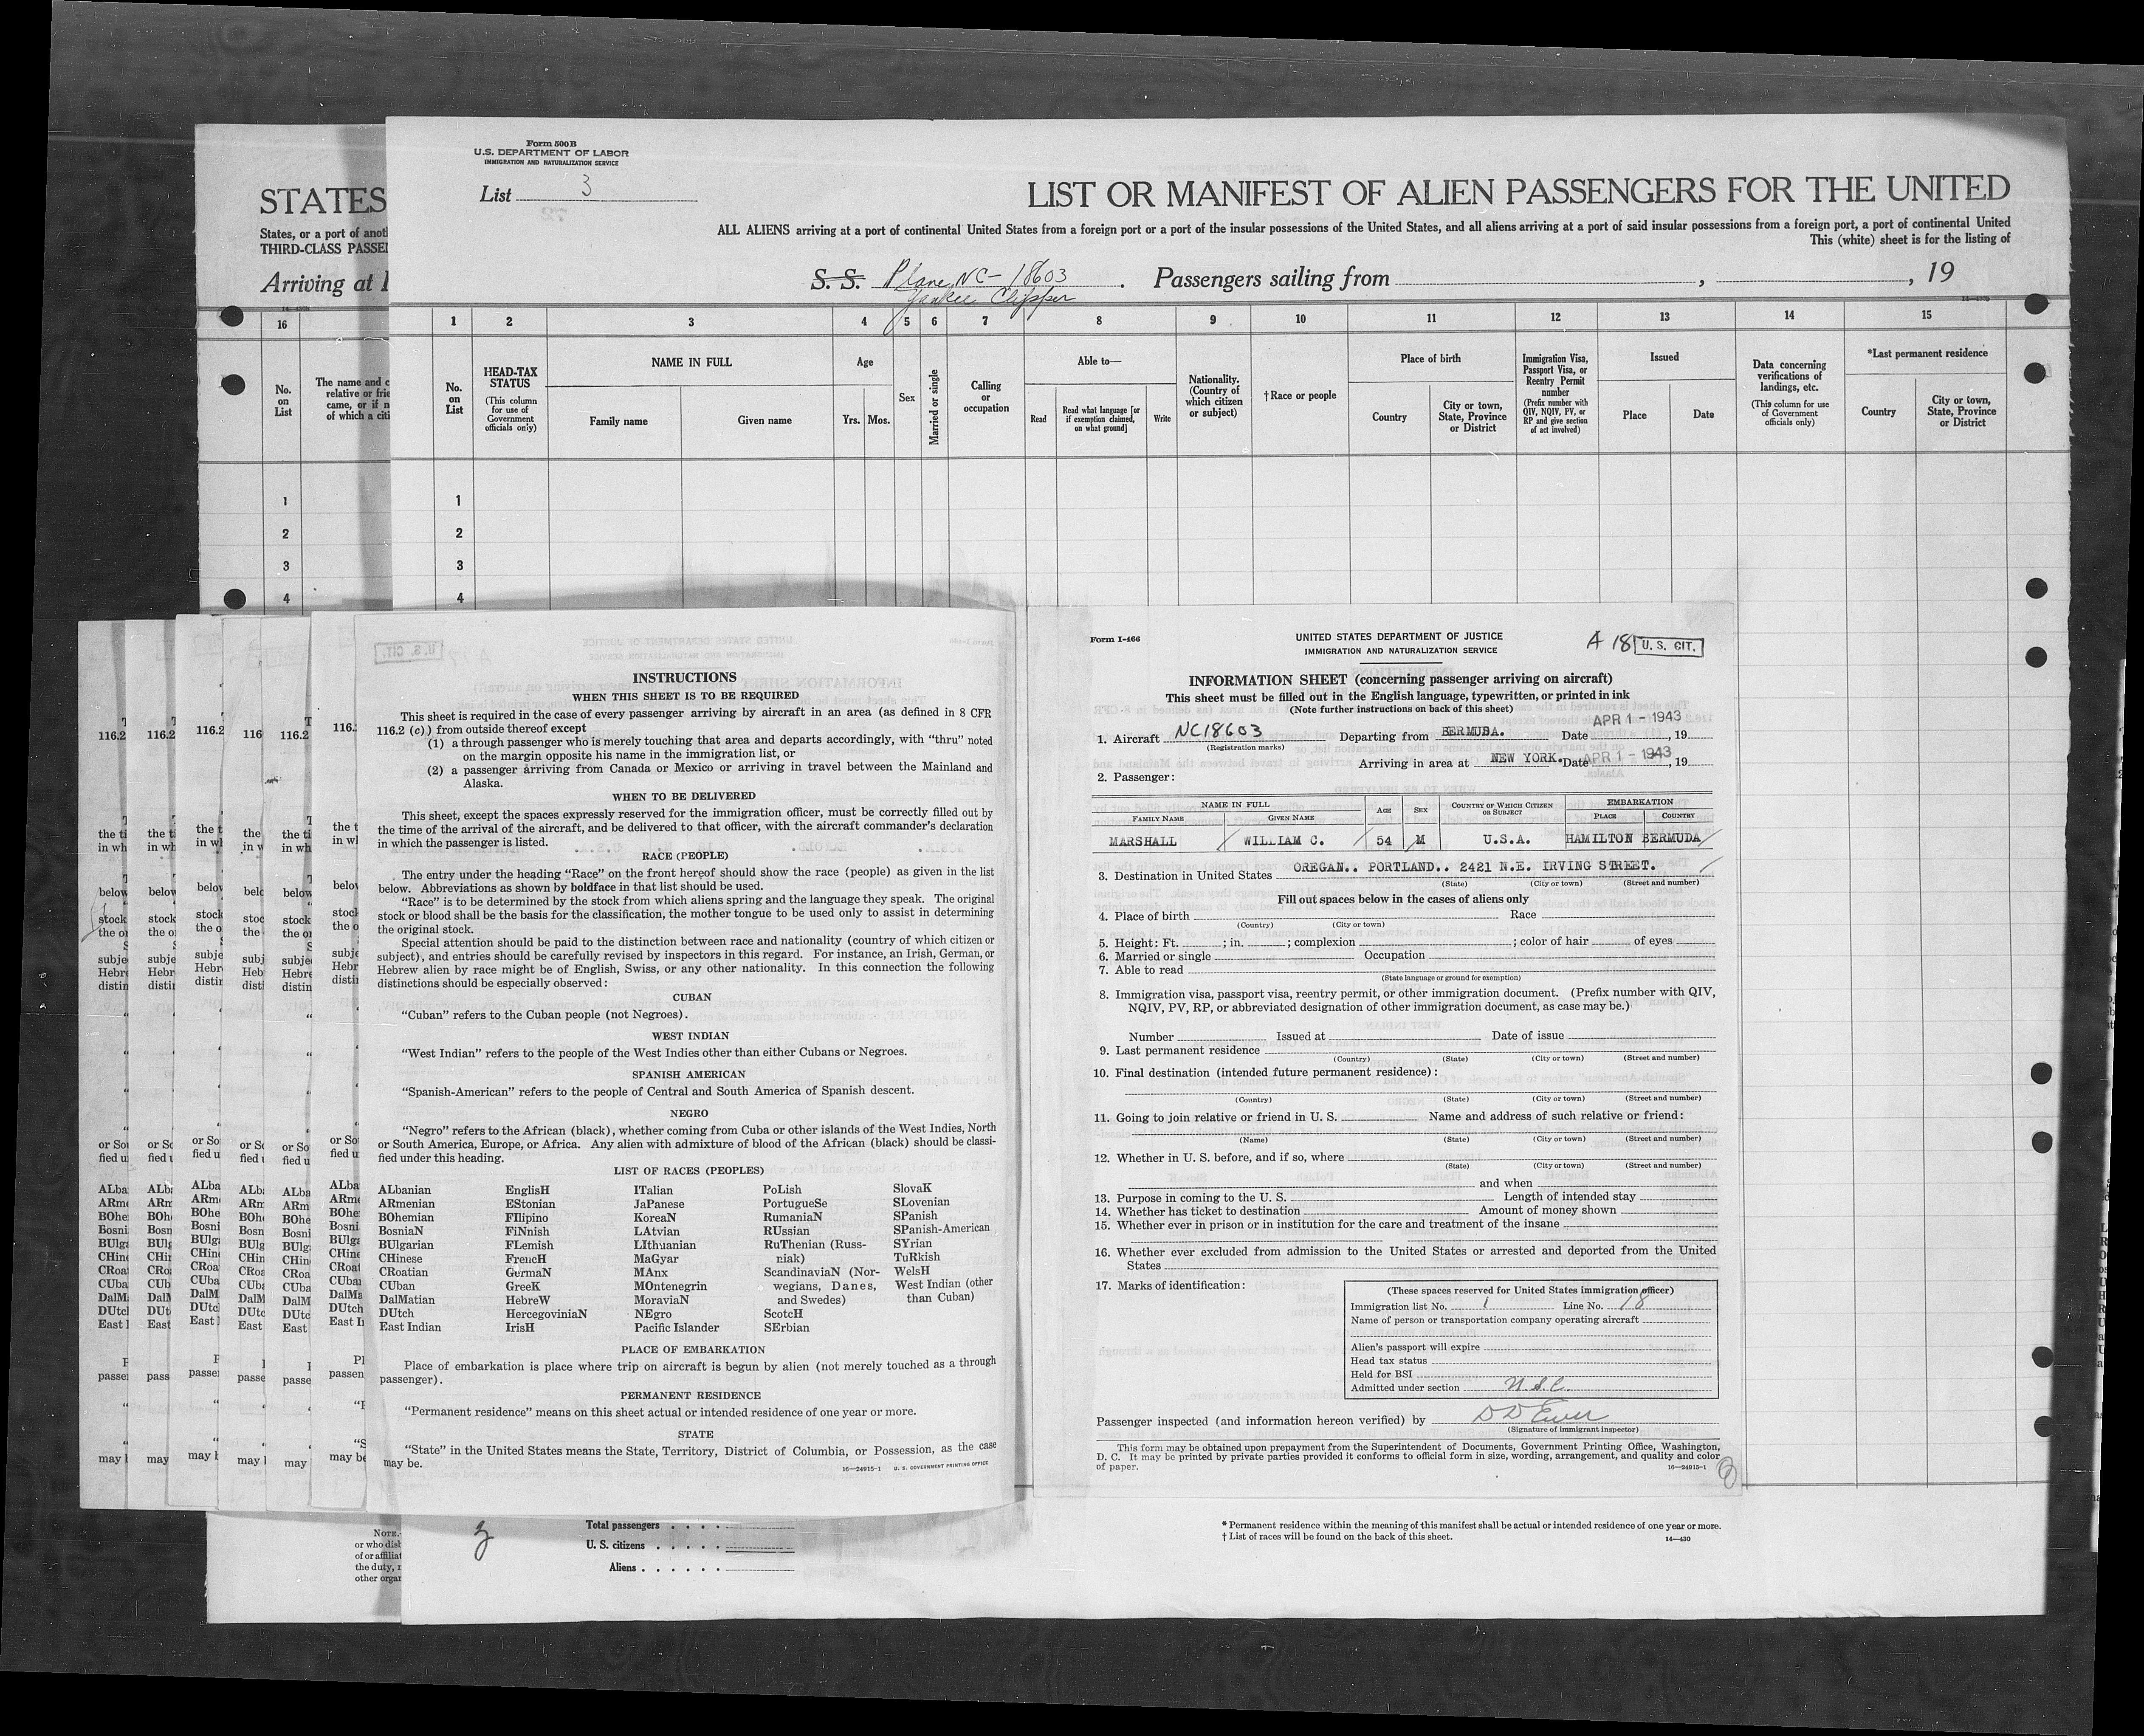 Form 500B
U.S. DEPARTMENT OF LABOR
IMMIGRATION AND NATURALIZATION SERVICE
List 3
STATES
LIST OR MANIFEST OF ALIEN PASSENGERS FOR THE UNITED
States, or a port of anot
THIRD-CLASS PASSE
ALL ALIENS arriving at a port of continental United States from a foreign port or a port of the insular possessions of the United States, and all aliens arriving at a port of said insular possessions from a foreign port, a port of continental United
This (white) sheet is for the listing of
Arriving at
S. S. Plane NC-18603
Yankee Clipper
. Passengers sailing from , , 19
16 1 2 3 4 5 6 7 8 9 10 11 12 13 14 15
No. on List
The name and c
relative or frie
came, or if n
of which a citi
No. on List
HEAD-TAX STATUS
(This column for use of Government officials only)
NAME IN FULL
Family name Given name
Age
Yrs. Mos.
Sex
Married or single
Calling or occupation
Able to—
Read
Read what language [or if exemption claimed, on what ground]
Write
Nationality. (Country of which citizen or subject)
†Race or people
Place of birth
Country
City or town, State, Province or District
Immigration Visa, Passport Visa, or Reentry Permit number
(Prefix number with QIV, NQIV, PV, or RP and give section of act involved)
Issued
Place Date
Data concerning verifications of landings, etc.
(This column for use of Government officials only)
*Last permanent residence
Country
City or town, State, Province or District
1 1
2 2
3 3
4 4
INSTRUCTIONS
WHEN THIS SHEET IS TO BE REQUIRED
This sheet is required in the case of every passenger arriving by aircraft in an area (as defined in 8 CFR
116.2 (c)) from outside thereof except
(1) a through passenger who is merely touching that area and departs accordingly, with "thru" noted
on the margin opposite his name in the immigration list, or
(2) a passenger arriving from Canada or Mexico or arriving in travel between the Mainland and
Alaska.
WHEN TO BE DELIVERED
This sheet, except the spaces expressly reserved for the immigration officer, must be correctly filled out by
the time of the arrival of the aircraft, and be delivered to that officer, with the aircraft commander's declaration
in which the passenger is listed.
RACE (PEOPLE)
The entry under the heading "Race" on the front hereof should show the race (people) as given in the list
below. Abbreviations as shown by boldface in that list should be used.
"Race" is to be determined by the stock from which aliens spring and the language they speak. The original
stock or blood shall be the basis for the classification, the mother tongue to be used only to assist in determining
the original stock.
Special attention should be paid to the distinction between race and nationality (country of which citizen or
subject), and entries should be carefully revised by inspectors in this regard. For instance, an Irish, German, or
Hebrew alien by race might be of English, Swiss, or any other nationality. In this connection the following
distinctions should be especially observed:
CUBAN
"Cuban" refers to the Cuban people (not Negroes).
WEST INDIAN
"West Indian" refers to the people of the West Indies other than either Cubans or Negroes.
SPANISH AMERICAN
"Spanish-American" refers to the people of Central and South America of Spanish descent.
NEGRO
"Negro" refers to the African (black), whether coming from Cuba or other islands of the West Indies, North
or South America, Europe, or Africa. Any alien with admixture of blood of the African (black) should be classi-
fied under this heading.
LIST OF RACES (PEOPLES)
ALbanian EnglisH ITalian PoLish SlovaK
ARmenian EStonian JaPanese PortugueSe SLovenian
BOhemian FIlipino KoreaN RumaniaN SPanish
BosniaN FiNnish LAtvian RUssian SPanish-American
BUlgarian FLemish LIthuanian RuThenian (Russ- SYrian
CHinese FrencH MaGyar niak) TuRkish
CRoatian GermaN MAnx ScandinaviaN (Nor- WelsH
CUban GreeK MOntenegrin wegians, Danes, West Indian (other
DalMatian HebreW MoraviaN and Swedes) than Cuban)
DUtch HercegoviniaN NEgro ScotcH
East Indian IrisH Pacific Islander SErbian
PLACE OF EMBARKATION
Place of embarkation is place where trip on aircraft is begun by alien (not merely touched as a through
passenger).
PERMANENT RESIDENCE
"Permanent residence" means on this sheet actual or intended residence of one year or more.
STATE
"State" in the United States means the State, Territory, District of Columbia, or Possession, as the case
may be.
16—24915-1 U. S. GOVERNMENT PRINTING OFFICE
Form I-466
UNITED STATES DEPARTMENT OF JUSTICE
IMMIGRATION AND NATURALIZATION SERVICE
A 18 U. S. CIT.
INFORMATION SHEET (concerning passenger arriving on aircraft)
This sheet must be filled out in the English language, typewritten, or printed in ink
(Note further instructions on back of this sheet)
1. Aircraft NC18603 Departing from BERMUDA. Date APR 1 - 1943, 19
(Registration marks)
Arriving in area at NEW YORK. Date APR 1 - 1943, 19
2. Passenger:
NAME IN FULL AGE SEX COUNTRY OF WHICH CITIZEN OR SUBJECT EMBARKATION
FAMILY NAME GIVEN NAME PLACE COUNTRY
MARSHALL WILLIAM C. 54 M U.S.A. HAMILTON BERMUDA
3. Destination in United States OREGAN.. PORTLAND.. 2421 N.E. IRVING STREET.
(State) (City or town) (Street and number)
Fill out spaces below in the cases of aliens only
4. Place of birth Race
(Country) (City or town)
5. Height: Ft. ; in. ; complexion ; color of hair of eyes
6. Married or single Occupation
7. Able to read
(State language or ground for exemption)
8. Immigration visa, passport visa, reentry permit, or other immigration document. (Prefix number with QIV,
NQIV, PV, RP, or abbreviated designation of other immigration document, as case may be.)
Number Issued at Date of issue
9. Last permanent residence
(Country) (State) (City or town) (Street and number)
10. Final destination (intended future permanent residence):
(Country) (State) (City or town) (Street and number)
11. Going to join relative or friend in U. S. Name and address of such relative or friend:
(Name) (State) (City or town) (Street and number)
12. Whether in U. S. before, and if so, where
(State) (City or town) (Street and number)
and when
13. Purpose in coming to the U. S. Length of intended stay
14. Whether has ticket to destination Amount of money shown
15. Whether ever in prison or in institution for the care and treatment of the insane
16. Whether ever excluded from admission to the United States or arrested and deported from the United
States
17. Marks of identification:
(These spaces reserved for United States immigration officer)
Immigration list No. 1 Line No. 18
Name of person or transportation company operating aircraft
Alien's passport will expire
Head tax status
Held for BSI
Admitted under section U.S.C.
Passenger inspected (and information hereon verified) by
(Signature of immigrant inspector)
This form may be obtained upon prepayment from the Superintendent of Documents, Government Printing Office, Washington,
D. C. It may be printed by private parties provided it conforms to official form in size, wording, arrangement, and quality and color
of paper.
16—24915-1
NOTE.
or who disb
of or affiliat
the duty,
other organ
Total passengers . . . .
U. S. citizens . . . . .
Aliens . . . . . .
* Permanent residence within the meaning of this manifest shall be actual or intended residence of one year or more.
† List of races will be found on the back of this sheet.
14—430